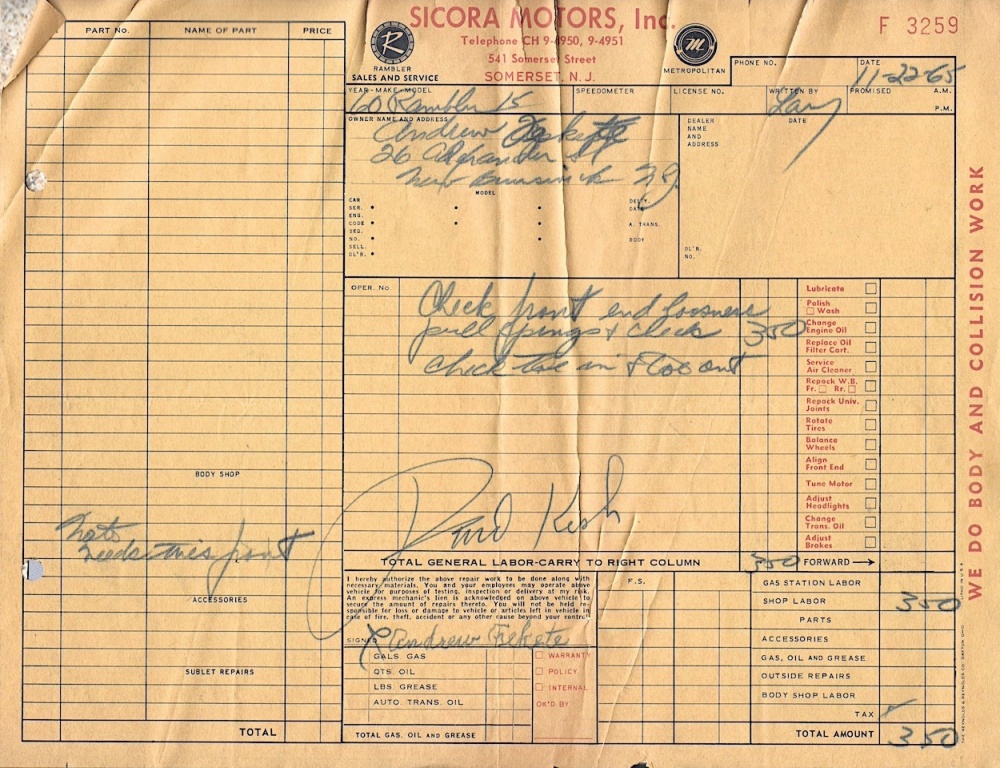 PART No. NAME OF PART PRICE
SICORA MOTORS, Inc.
Telephone CH 9-4950, 9-4951
541 Somerset Street
SOMERSET, N. J.
R
RAMBLER
SALES AND SERVICE
M
METROPOLITAN
F 3259
PHONE NO. DATE 11-22-65
YEAR-MAKE-MODEL SPEEDOMETER LICENSE NO. WRITTEN BY PROMISED A.M.
60 Rambler Larry P.M.
OWNER NAME AND ADDRESS
Andrew Fekete
26 Alexander St
New Brunswick N.J.
DEALER NAME AND ADDRESS
DATE
MODEL
CAR
SER.
ENG.
CODE
SEQ.
NO.
SELL.
DL'R.
DEL'Y. DATE
A. TRANS.
BODY
DL'R. NO.
OPER. No.
Check front end looseness
pull springs & check 350
check toe in & too out
Lubricate
Polish
Wash
Change
Engine Oil
Replace Oil
Filter Cart.
Service
Air Cleaner
Repack W.B.
Fr. Rr.
Repack Univ.
Joints
Rotate
Tires
Balance
Wheels
Align
Front End
Tune Motor
Adjust
Headlights
Change
Trans. Oil
Adjust
Brakes
WE DO BODY AND COLLISION WORK
BODY SHOP
Note
Needs tires front
ACCESSORIES
SUBLET REPAIRS
TOTAL
TOTAL GENERAL LABOR-CARRY TO RIGHT COLUMN 350 FORWARD →
I hereby authorize the above repair work to be done along with
necessary materials. You and your employees may operate above
vehicle for purposes of testing, inspection or delivery at my risk.
An express mechanic's lien is acknowledged on above vehicle to
secure the amount of repairs thereto. You will not be held re-
sponsible for loss or damage to vehicle or articles left in vehicle in
case of fire, theft, accident or any other cause beyond your control
SIGNED X Andrew Fekete
GALS. GAS
QTS. OIL
LBS. GREASE
AUTO. TRANS. OIL
TOTAL GAS, OIL AND GREASE
WARRANTY
POLICY
INTERNAL
OK'D BY
F.S.
GAS STATION LABOR
SHOP LABOR 350
PARTS
ACCESSORIES
GAS, OIL AND GREASE
OUTSIDE REPAIRS
BODY SHOP LABOR
TAX
TOTAL AMOUNT 350